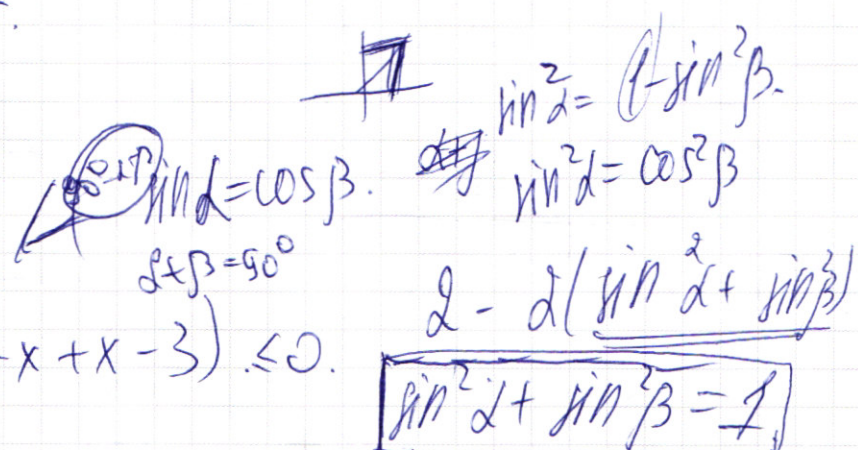 sin²α = 1 - sin²β.
sin α = cos β.
sin²α = cos²β
α + β = 90°
2 - 2(sin²α + sin²β)
-x + x - 3) ≤ 0.
sin²α + sin²β = 1